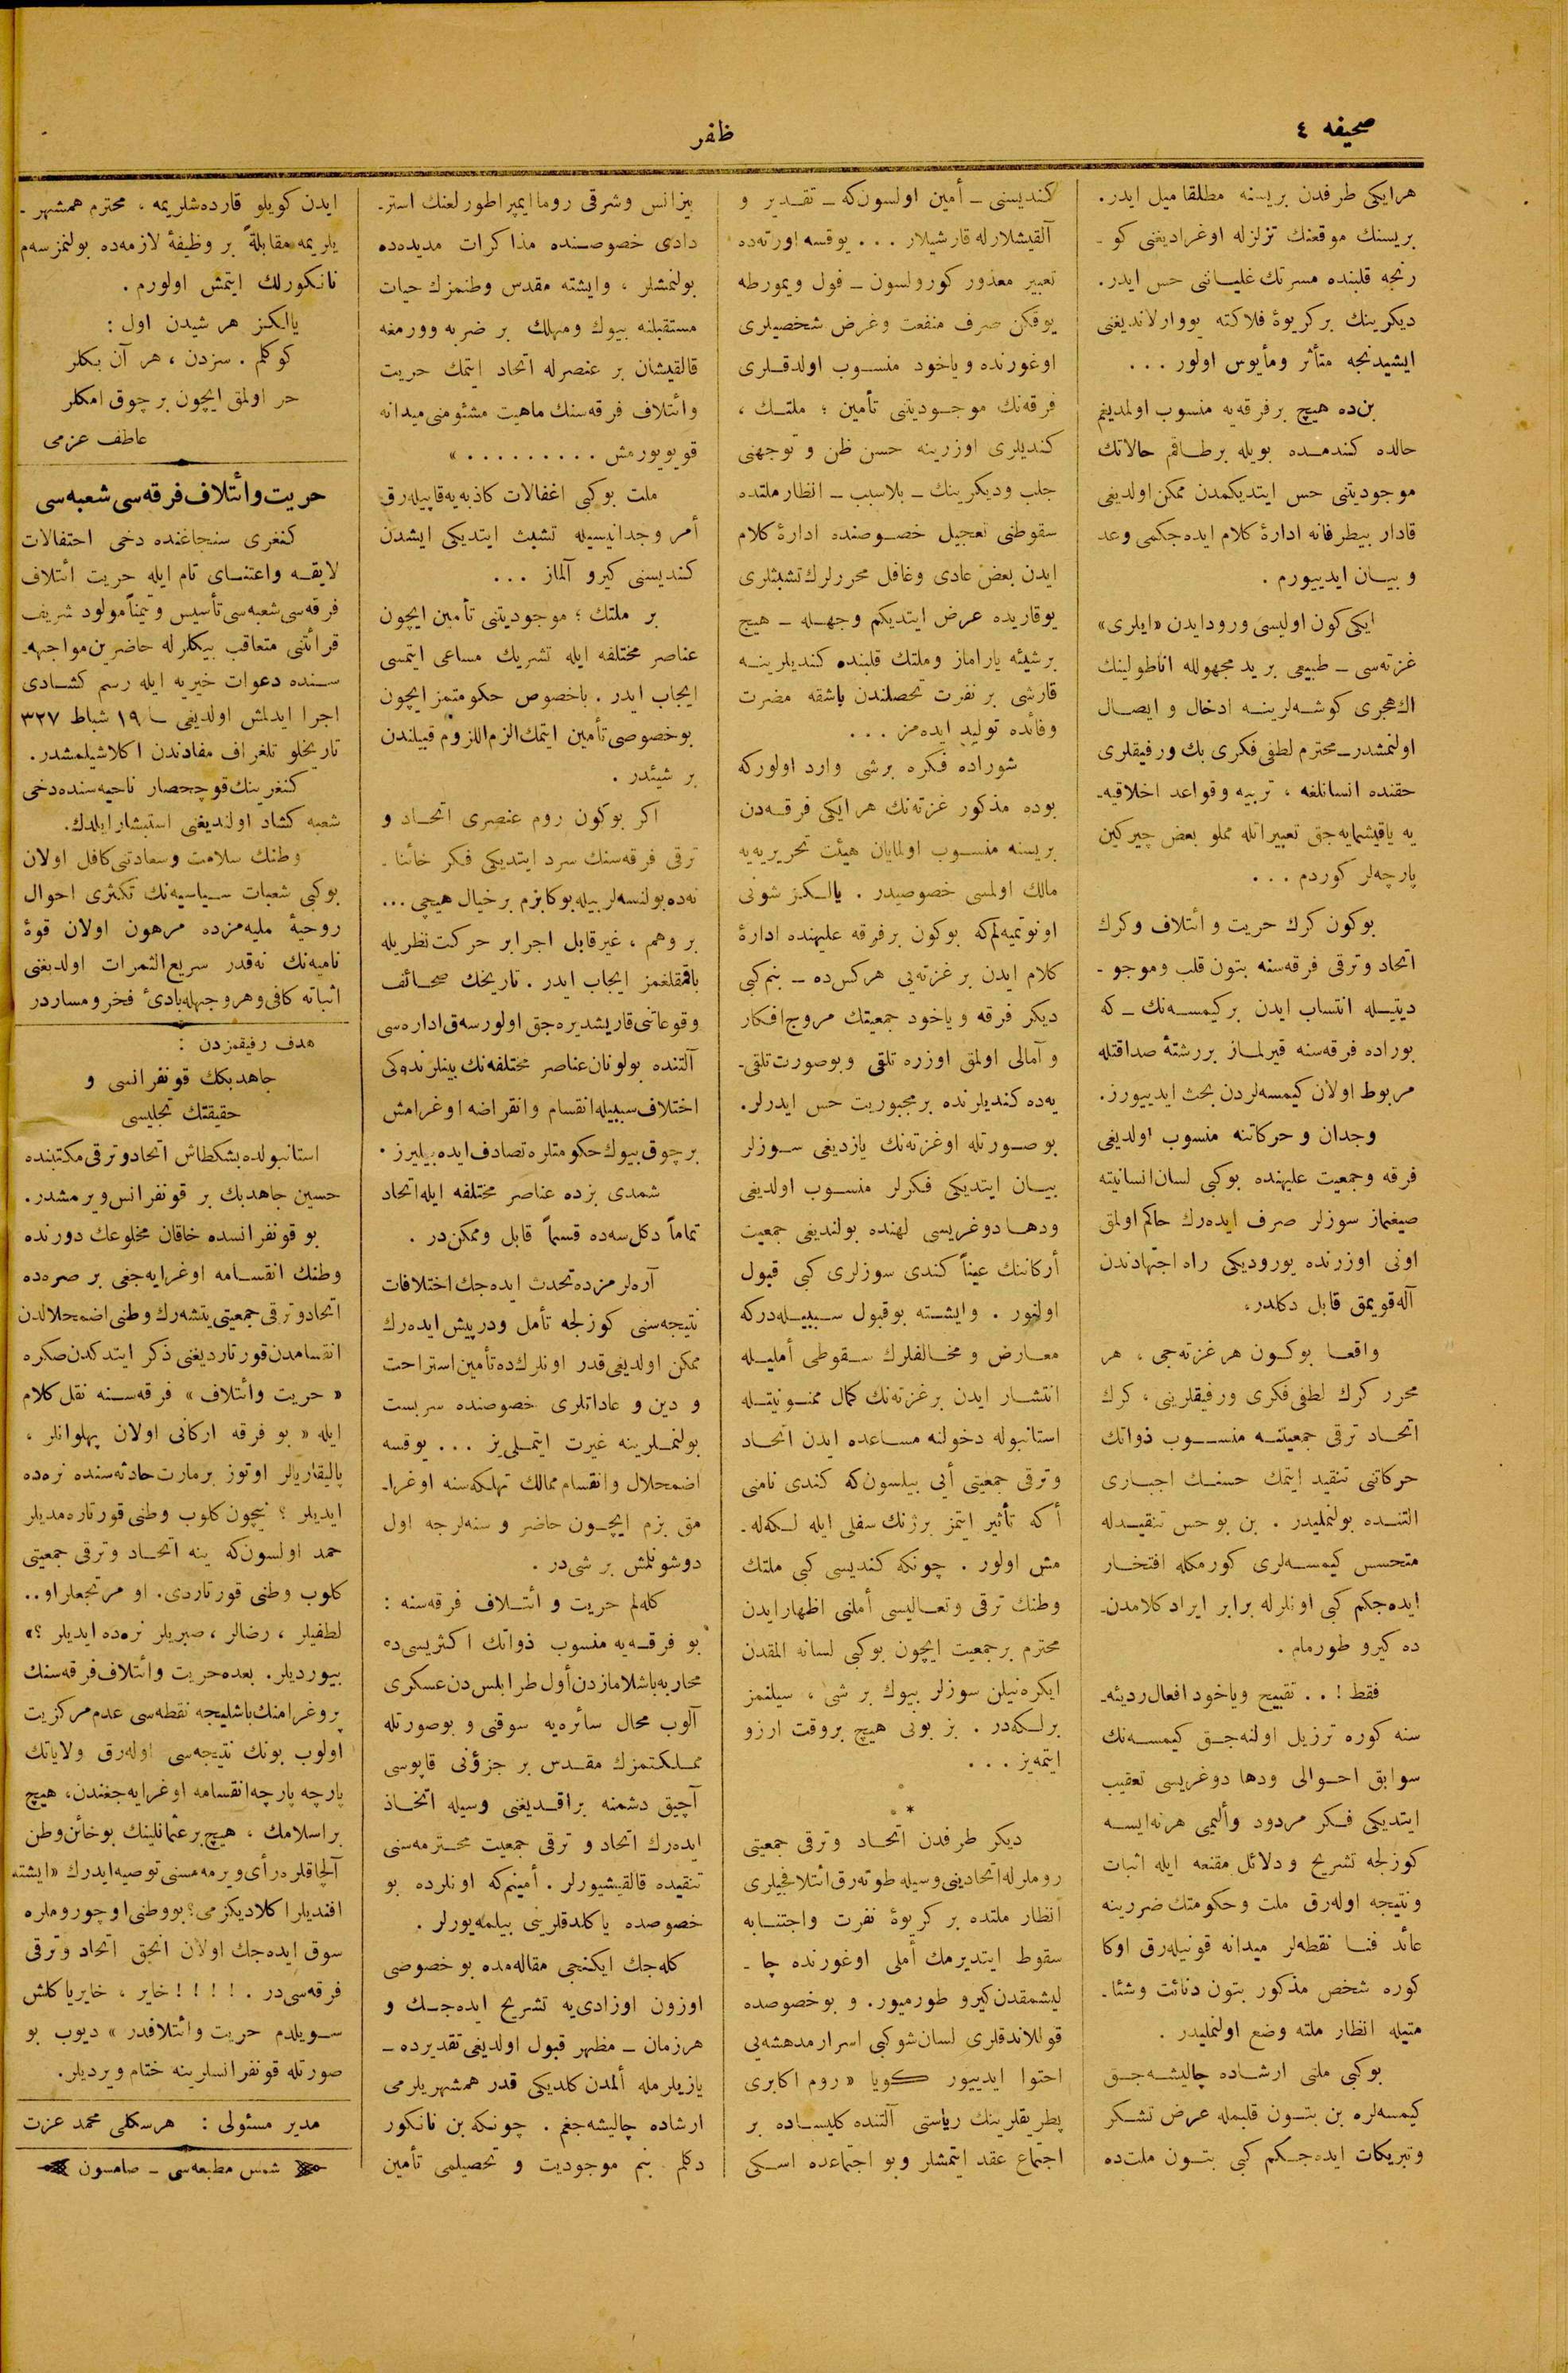 صحیفه ٤
ظفر
هر ایکی طرفدن بریسنه مطلقا میل ایدر.
بریسنك موقعنك تزلزله اوغرادیغنی کو ـ
رنجه قلبنده مسرتك غلیاننی حس ایدر.
دیکرینك بر کریوهٔ فلاکته یووارلاندیغنی
ایشیدنجه متأثر ومأیوس اولور ...
بن‌ده هیچ بر فرقه‌یه منسوب اولمدیغم
حالده کندمده بویله بر طاقم حالاتك
موجودیتنی حس ایتدیکمدن ممکن اولدیغی
قادار بیطرفانه ادارهٔ کلام ایده‌جکمی وعد
و بیان ایدییورم .
ایکی کون اولیسی ورود ایدن «ایلری»
غزته‌سی ـ طبیعی برید مجهولله اناطولینك
اك هجری کوشه‌لرینه ادخال و ایصال
اولنمشدر ـ محترم لطفی فکری بك ورفیقلری
حقنده انسانلغه ، تربیه وقواعد اخلاقیه‌ـ
یه یاقیشمایه‌جق تعبیراتله مملو بعض چیرکین
پارچه‌لر کوردم ...
بوکون کرك حریت و ائتلاف وکرك
اتحاد وترقی فرقه‌سنه بتون قلب وموجو ـ
دیتیله انتساب ایدن بر کیمسه‌نك ـ که
بوراده فرقه‌سنه قیرلماز بر رشتهٔ صداقتله
مربوط اولان کیمسه‌لردن بحث ایدییورز.
وجدان و حرکاتنه منسوب اولدیغی
فرقه وجمعیت علیهنده بوکبی لسان انسانیته
صیغماز سوزلر صرف ایده‌رك حاکم اولمق
اونی اوزرنده یورودیکی راه اجتهادندن
آله قویمق قابل دکلدر،
واقعا بوکون هر غزته‌جی ، هر
محرر کرك لطفی فکری ورفیقلرینی ، کرك
اتحاد ترقی جمعیتنه منسوب ذواتك
حرکاتنی تنقید ایتمك حسنك اجباری
التنده بولنملیدر . بن بو حس تنقیدله
متحسس کیمسه‌لری کورمکله افتخار
ایده‌جکم کبی اونلرله برابر ایراد کلامدن‌ـ
ده کیرو طورمام .
فقط ! .. تقبیح ویاخود افعال ردیئه‌ـ
سنه کوره ترزیل اولنه‌جق کیمسه‌نك
سوابق احوالی ودها دوغریسی تعقیب
ایتدیکی فکر مردود وألیمی هرنه ایسه
کوزلجه تشریح ودلائل مقنعه ایله اثبات
ونتیجه اوله‌رق ملت وحکومتك ضررینه
عائد فنا نقطه‌لر میدانه قونیله‌رق اوکا
کوره شخص مذکور بتون دنائت وشئا‌ـ
متیله انظار ملته وضع اولنملیدر .
بوکبی ملتی ارشاده چالیشه‌جق
کیمسه‌لره بن بتون قلبمله عرض تشکر
وتبریکات ایده‌جکم کبی بتون ملت‌ده
کندیسنی ـ أمین اولسون‌که ـ تقدیر و
آلقیشلارله قارشیلار ... یوقسه اورته‌ده
تعبیر معذور کورولسون ـ فول ویمورطه
یوقکن صرف منفعت وغرض شخصیلری
اوغورنده ویاخود منسوب اولدقلری
فرقه‌نك موجودیتنی تأمین ؛ ملتك ،
کندیلری اوزرینه حسن ظن و توجهنی
جلب ودیکرینك ـ بلاسبب ـ انظار ملتده
سقوطنی تعجیل خصوصنده ادارهٔ کلام
ایدن بعض عادی وغافل محررلرك تشبثلری
یوقاریده عرض ایتدیکم وجهله ـ هیچ
بر شیئه یاراماز وملتك قلبنده کندیلرینه
قارشی بر نفرت تحصلندن باشقه مضرت
وفائده تولید ایده‌مز ...
شوراده فکره برشی وارد اولورکه
بوده مذکور غزته‌نك هر ایکی فرقه‌دن
بریسنه منسوب اولمایان هیئت تحریریه‌یه
مالك اولمسی خصوصیدر . یالکز شونی
اونوتمیه‌لم‌که بوکون بر فرقه علیهنده ادارهٔ
کلام ایدن بر غزته‌یی هرکس‌ده ـ بنم کبی
دیکر فرقه ویاخود جمعیتك مروج افکار
و آمالی اولمق اوزره تلقی وبو صورت تلقی‌ـ
یه‌ده کندیلرنده بر مجبوریت حس ایدرلر.
بو صورتله او غزته‌نك یازدیغی سوزلر
بیان ایتدیکی فکرلر منسوب اولدیغی
ودها دوغریسی لهنده بولندیغی جمعیت
أرکاننك عیناً کندی سوزلری کبی قبول
اولنور . وایشته بو قبول سبیله‌درکه
معارض و مخالفلرك سقوطی أملیله
انتشار ایدن بر غزته‌نك کمال ممنونیتله
استانبوله دخولنه مساعده ایدن اتحاد
وترقی جمعیتی أیی بیلسون‌که کندی نامنی
أکه تأثیر ایتمز بر ژنك سفلی ایله لکه‌له‌ـ
مش اولور . چونکه کندیسی کبی ملتك
وطنك ترقی وتعالیسی أملنی اظهار ایدن
محترم بر جمعیت ایچون بوکبی لسانه المقدن
ایکره‌نیلن سوزلر بیوك بر شی ، سیلنمز
بر لکه‌در . بز بونی هیچ بر وقت ارزو
ایتمه‌یز ...
*
دیکر طرفدن اتحاد وترقی جمعیتی
روملرله اتحادینی وسیله طوته‌رق ائتلافجیلری
انظار ملتده بر کریوهٔ نفرت واجتنابه
سقوط ایتدیرمك أملی اوغورنده چا ـ
لیشمقدن کیرو طورمیور. و بو خصوصده
قوللاندقلری لسان شوکبی اسرار مدهشه‌یی
احتوا ایدییور کویا «روم اکابری
پطریقلرینك ریاستی آلتنده کلیساده بر
اجتماع عقد ایتمشلر وبو اجتماعده اسکی
بیزانس وشرقی روما ایمپراطورلغنك استر‌ـ
دادی خصوصنده مذاکرات مدیده‌ده
بولنمشلر ، وایشته مقدس وطنمزك حیات
مستقبلنه بیوك ومهلك بر ضربه وورمغه
قالقیشان بر عنصرله اتحاد ایتمك حریت
وائتلاف فرقه‌سنك ماهیت مشئومنی میدانه
قویویورمش .........»
ملت بوکبی اغفالات کاذبه‌یه قاپیله‌رق
أمر وجدانیسیله تشبث ایتدیکی ایشدن
کندیسنی کیرو آلماز ...
بر ملتك ؛ موجودیتنی تأمین ایچون
عناصر مختلفه ایله تشریك مساعی ایتمسی
ایجاب ایدر . باخصوص حکومتمز ایچون
بو خصوصی تأمین ایتمك الزم اللزوم قبیلندن
بر شیئدر .
اکر بوکون روم عنصری اتحاد و
ترقی فرقه‌سنك سرد ایتدیکی فکر خائنا‌ـ
نه‌ده بولنسه‌لر بیله بو کا بزم بر خیال هیچی ...
بر وهم ، غیر قابل اجرا بر حرکت نظریله
باقمقلغمز ایجاب ایدر . تاریخك صحائف
وقوعاتنی قاریشدیره‌جق اولورسه‌ق اداره‌سی
آلتنده بولونان عناصر مختلفه‌نك بینلرنده‌کی
اختلاف سببیله انقسام وانقراضه اوغرامش
بر چوق بیوك حکومتلره تصادف ایده‌بیلیرز .
شمدی بزده عناصر مختلفه ایله اتحاد
تماماً دکلسه‌ده قسماً قابل وممکن‌در .
آره‌لرمزده تحدث ایده‌جك اختلافات
نتیجه‌سنی کوزلجه تأمل ودرپیش ایده‌رك
ممکن اولدیغی قدر اونلرك‌ده تأمین استراحت
و دین و عاداتلری خصوصنده سربست
بولنملرینه غیرت ایتملی‌یز ... یوقسه
اضمحلال وانقسام ممالك تهلکه‌سنه اوغرا‌ـ
مق بزم ایچون حاضر وسنه‌لرجه اول
دوشونلمش بر شی‌در .
کله‌لم حریت و ائتلاف فرقه‌سنه :
بو فرقه‌یه منسوب ذواتك اکثریسی‌ده
محاربه باشلامازدن أول طرابلس‌دن عسکری
آلوب محال سائره‌یه سوقنی و بوصورتله
مملکتمزك مقدس بر جزؤنی قاپوسی
آچیق دشمنه براقدیغنی وسیله اتخاذ
ایده‌رك اتحاد و ترقی جمعیت محترمه‌سنی
تنقیده قالقیشیورلر . أمینم‌که اونلرده بو
خصوصده یاکلدقلرینی بیلمه‌یورلر .
کله‌جك ایکنجی مقاله‌مده بو خصوصی
اوزون اوزادی‌یه تشریح ایده‌جك و
هر زمان ـ مظهر قبول اولدیغی تقدیرده ـ
یازیلرمله ألمدن کلدیکی قدر همشهریلرمی
ارشاده چالیشه‌جغم . چونکه بن نانکور
دکلم بنم موجودیت و تحصیلمی تأمین
ایدن کویلو قارده‌شلریمه ، محترم همشهر ـ
یلریمه مقابلةً بر وظیفهٔ لازمه‌ده بولنمزسه‌م
نانکورلك ایتمش اولورم .
یالکز هر شیدن اول :
کوکلم . سزدن ، هر آن بکلر
حر اولمق ایچون بر چوق امکلر
عاطف عزمی
حریت وائتلاف فرقه‌سی شعبه‌سی
کنغری سنجاغنده دخی احتفالات
لایقه واعتنای تام ایله حریت ائتلاف
فرقه‌سی شعبه‌سی تأسیس وتیمناً مولود شریف
قرائتنی متعاقب بیکلرله حاضرین مواجهه‌ـ
سنده دعوات خیریه ایله رسم کشادی
اجرا ایدلمش اولدیغی ١٩ شباط ٣٢٧
تاریخلو تلغراف مفادندن اکلاشیلمشدر.
کنغرینك قوچحصار ناحیه‌سنده دخی
شعبه کشاد اولندیغنی استبشار ایلدك.
وطنك سلامت وسعادتنی کافل اولان
بوکبی شعبات سیاسیه‌نك تکثری احوال
روحیهٔ ملیه‌مزده مرهون اولان قوهٔ
نامیه‌نك نه‌قدر سریع الثمرات اولدیغنی
اثباته کافی وهر وجهله بادیٔ فخر ومساردر
هدف رفیقمزدن :
جاهد بکك قونفرانسی و
حقیقتك تجلیسی
استانبولده بشکطاش اتحاد وترقی مکتبنده
حسین جاهد بك بر قونفرانس ویرمشدر.
بو قونفرانسده خاقان مخلوعك دورنده
وطنك انقسامه اوغرایه‌جغی بر صره‌ده
اتحاد وترقی جمعیتی یتشه‌رك وطنی اضمحلالدن
انقسامدن قورتاردیغنی ذکر ایتدکدن صکره
« حریت وائتلاف » فرقه‌سنه نقل کلام
ایله « بو فرقه ارکانی اولان پهلوانلر ،
پالیقاریالر اوتوز بر مارت حادثه‌سنده نره‌ده
ایدیلر ؟ نیچون کلوب وطنی قورتاره‌مدیلر
حمد اولسون‌که ینه اتحاد وترقی جمعیتی
کلوب وطنی قورتاردی. او مرتجعلر او..
لطفیلر ، رضالر ، صبریلر نره‌ده ایدیلر ؟»
بیوردیلر. بعده حریت وائتلاف فرقه‌سنك
پروغرامنك باشلیجه نقطه‌سی عدم مرکزیت
اولوب بونك نتیجه‌سی اوله‌رق ولایاتك
پارچه پارچه انقسامه اوغرایه‌جغندن، هیچ
بر اسلامك ، هیچ بر عثمانلینك بو خائن وطن
آلچاقلره رأی ویرمه‌مسنی توصیه ایدرك «ایشته
افندیلر اکلادیکزمی؟ بو وطنی اوچوروملره
سوق ایده‌جك اولان انجق اتحاد وترقی
فرقه‌سی‌در . ! ! ! ! خایر ، خایر یاکلش
سویلدم حریت وائتلافدر » دیوب بو
صورتله قونفرانسلرینه ختام ویردیلر.
مدیر مسئولی : هرسکلی محمد عزت
شمس مطبعه‌سی ـ صامسون